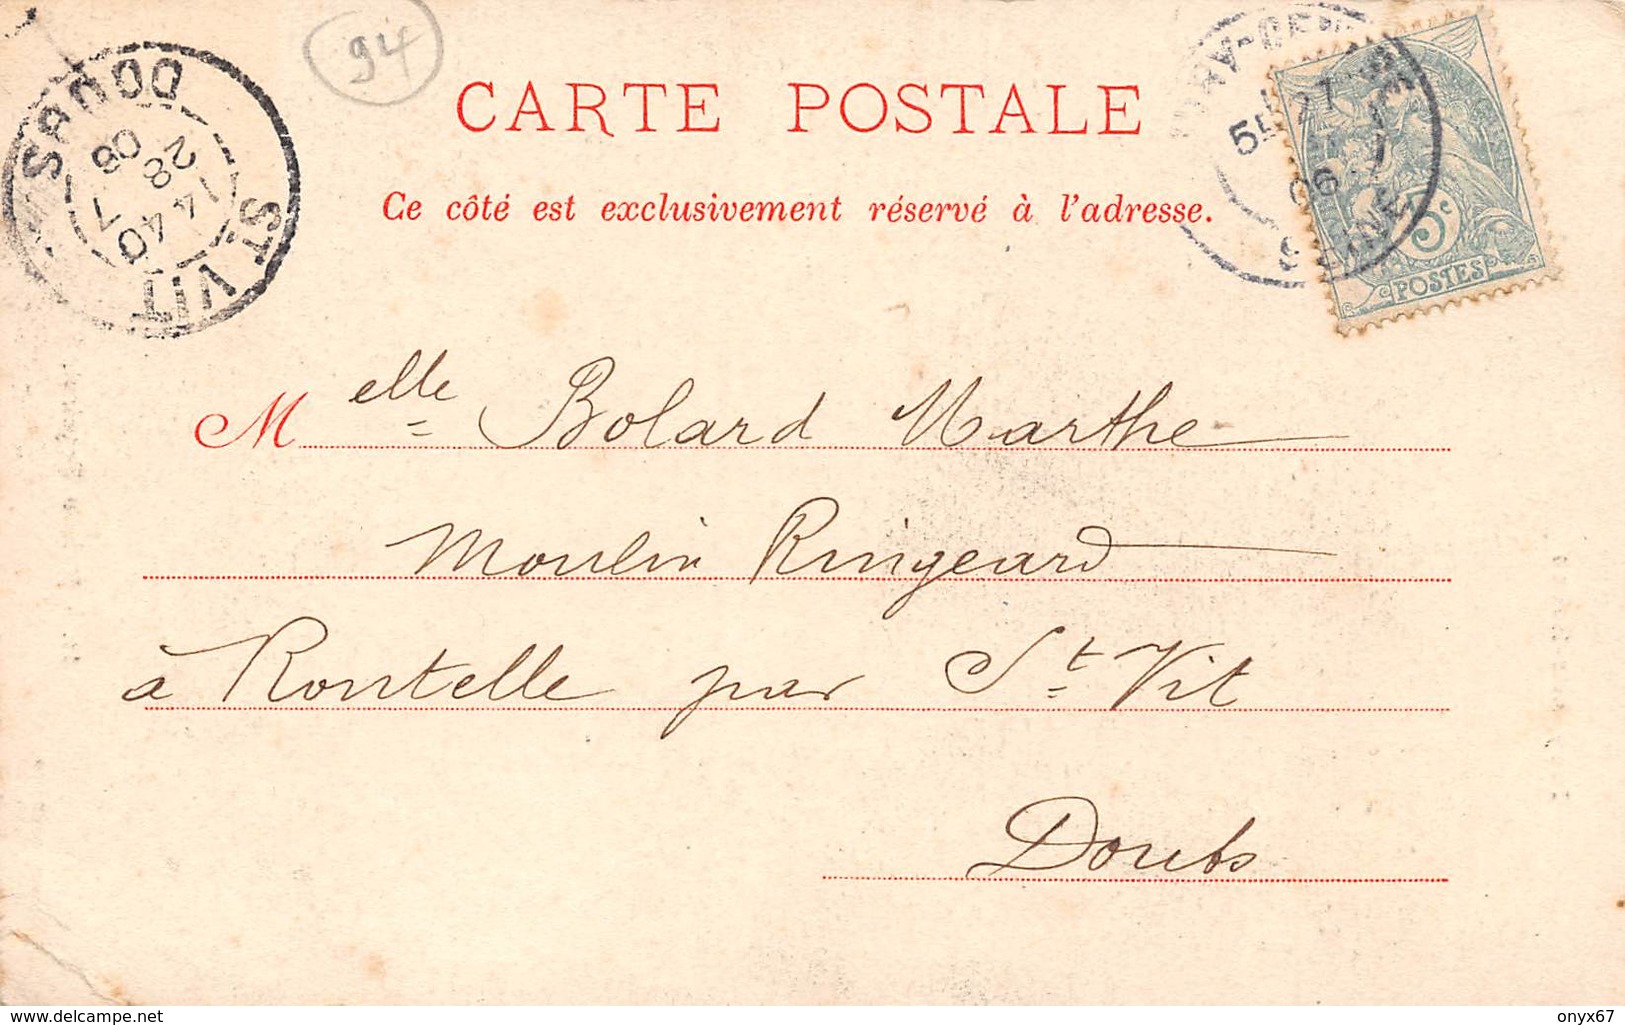 94
CARTE POSTALE
Ce côté est exclusivement réservé à l'adresse.
ST VIT
DOUBS
14 40
28
7
06
5E
06
SEINE
5c
POSTES
Melle Bolard Marthe
Moulin Ringeard
à Rontelle par St Vit
Doubs
delcampe.net
onyx67